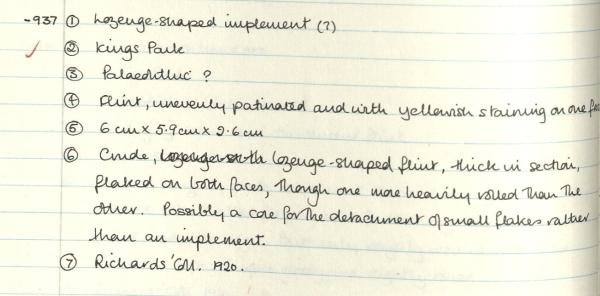 -937 ① Lozenge-shaped implement (?)
✓ ② Kings Park
③ Palaeolithic ?
④ Flint, unevenly patinated and with yellowish staining on one
⑤ 6 cm x 5.9cm x 2.6 cm
⑥ Crude, lozenge-shaped flint, thick in section,
flaked on both faces, though one more heavily rolled than the
other. Possibly a core for the detachment of small flakes rather
than an implement.
⑦ Richards' Coll. 1920.